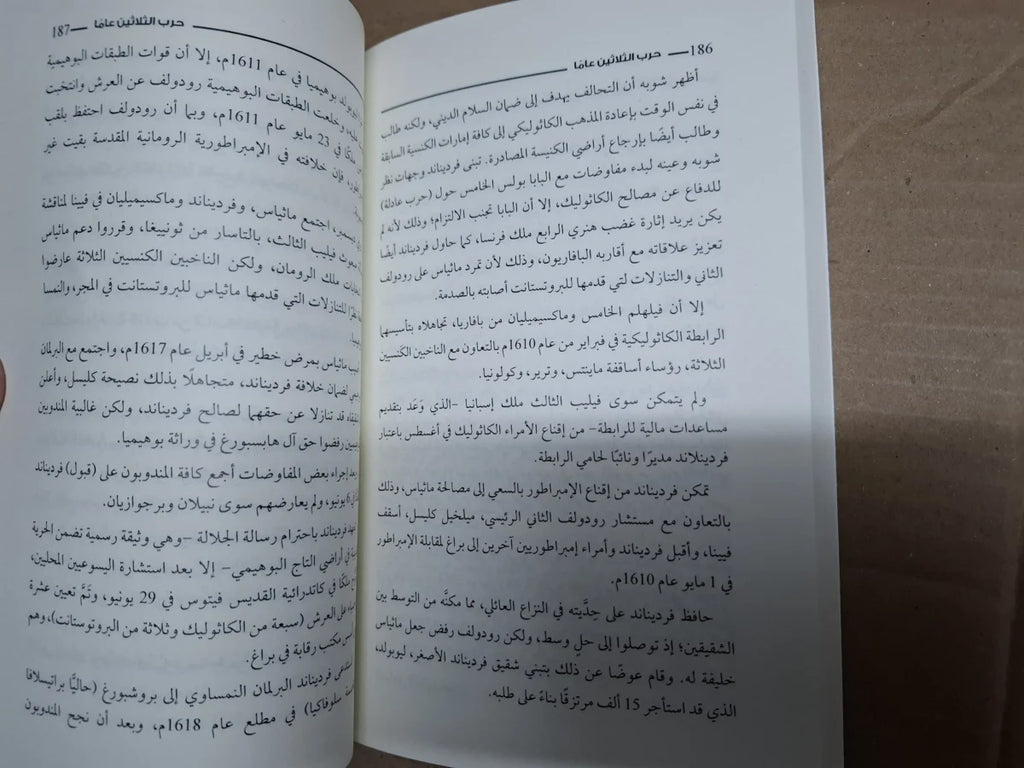 186 — حرب الثلاثين عامًا
أظهر شوبه أن التحالف يهدف إلى ضمان السلام الديني، ولكنه طالب
في نفس الوقت بإعادة المذهب الكاثوليكي إلى كافة إمارات الكنسية السابقة
وطالب أيضًا بإرجاع أراضي الكنيسة المصادرة. تبنى فرديناند وجهات نظر
شوبه وعينه لبدء مفاوضات مع البابا بولس الخامس حول (حرب عادلة)
للدفاع عن مصالح الكاثوليك، إلا أن البابا تجنب الالتزام؛ وذلك لأنه لم
يكن يريد إثارة غضب هنري الرابع ملك فرنسا، كما حاول فرديناند أيضًا
تعزيز علاقاته مع أقاربه البافاريون، وذلك لأن تمرد ماثياس على رودولف
الثاني والتنازلات التي قدمها للبروتستانت أصابته بالصدمة.
إلا أن فيلهلم الخامس وماكسيميليان من بافاريا، تجاهلاه بتأسيسهما
الرابطة الكاثوليكية في فبراير من عام 1610م بالتعاون مع الناخبين الكنسيين
الثلاثة، رؤساء أساقفة ماينتس، وترير، وكولونيا.
ولم يتمكن سوى فيليب الثالث ملك إسبانيا -الذي وَعَد بتقديم
مساعدات مالية للرابطة- من إقناع الأمراء الكاثوليك في أغسطس باعتبار
فردينلاند مديرًا ونائبًا لحامي الرابطة.
تمكن فرديناند من إقناع الإمبراطور بالسعي إلى مصالحة ماثياس، وذلك
بالتعاون مع مستشار رودولف الثاني الرئيسي، ميلخيل كليسل، أسقف
فيينا، وأقبل فرديناند وأمراء إمبراطوريين آخرين إلى براغ لمقابلة الإمبراطور
في 1 مايو عام 1610م.
حافظ فرديناند على حِدِّيته في النزاع العائلي، مما مكنَّه من التوسط بين
الشقيقين؛ إذ توصلوا إلى حلٍ وسط، ولكن رودولف رفض جعل ماثياس
خليفة له. وقام عوضًا عن ذلك بتبني شقيق فرديناند الأصغر، ليوبولد،
الذي قد استأجر 15 ألف مرتزقًا بناءً على طلبه.
187 — حرب الثلاثين عامًا
بوهيميا في عام 1611م، إلا أن قوات الطبقات البوهيمية
وخلعت الطبقات البوهيمية رودولف عن العرش وانتخبت
ملكًا في 23 مايو عام 1611م، وبما أن رودولف احتفظ بلقب
فإن خلافته في الإمبراطورية الرومانية المقدسة بقيت غير
اجتمع ماثياس، وفرديناند وماكسيميليان في فيينا لمناقشة
مبعوث فيليب الثالث، بالتاسار من ثونييغا، وقرروا دعم ماثياس
ملك الرومان، ولكن الناخبين الكنسيين الثلاثة عارضوا
للتنازلات التي قدمها ماثياس للبروتستانت في المجر، والنمسا
ماثياس بمرض خطير في أبريل عام 1617م، واجتمع مع البرلمان
لضمان خلافة فرديناند، متجاهلًا بذلك نصيحة كليسل، وأعلن
قد تنازلا عن حقهما لصالح فرديناند، ولكن غالبية المندوبين
رفضوا حق آل هابسبورغ في وراثة بوهيميا.
إجراء بعض المفاوضات أجمع كافة المندوبون على (قبول) فرديناند
في 6 يونيو، ولم يعارضهم سوى نبيلان وبرجوازيان.
فرديناند باحترام رسالة الجلالة -وهي وثيقة رسمية تضمن الحرية
في أراضي التاج البوهيمي- إلا بعد استشارة اليسوعيين المحليين،
ملكًا في كاتدرائية القديس فيتوس في 29 يونيو، وتمَّ تعيين عشرة
على العرش (سبعة من الكاثوليك وثلاثة من البروتوستانت)، وهم
مكتب رقابة في براغ.
فرديناند البرلمان النمساوي إلى بروشبورغ (حاليًّا براتيسلافا
سلوفاكيا) في مطلع عام 1618م، وبعد أن نجح المندوبون